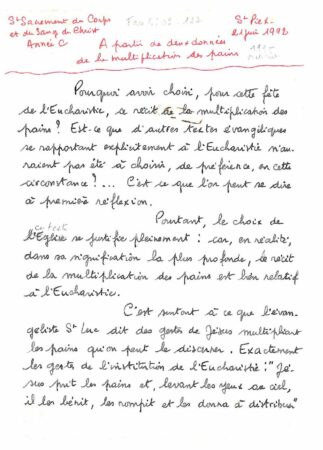 St Sacrement du Corps
et du Sang du Christ
Année C
St Pie X
21 juin 1992
A partir de deux données
de la multiplication des pains
Pourquoi avoir choisi, pour cette fête
de l'Eucharistie, ce récit de la multiplication des
pains ? Est-ce que d'autres textes évangéliques
se rapportant explicitement à l'Eucharistie n'au-
raient pas été à choisir, de préférence, en cette
circonstance ?... C'est ce que l'on peut se dire
à première réflexion.
Pourtant, le choix de
ce texte
l'Eglise se justifie pleinement : car, en réalité,
dans sa signification la plus profonde, le récit
de la multiplication des pains est bien relatif
à l'Eucharistie.
C'est surtout à ce que l'évan-
géliste St Luc dit des gestes de Jésus multipliant
les pains qu'on peut le discerner. Exactement
les gestes de l'institution de l'Eucharistie : "Jé-
sus prit les pains et, levant les yeux au ciel,
il les bénit, les rompit et les donna à distribuer"